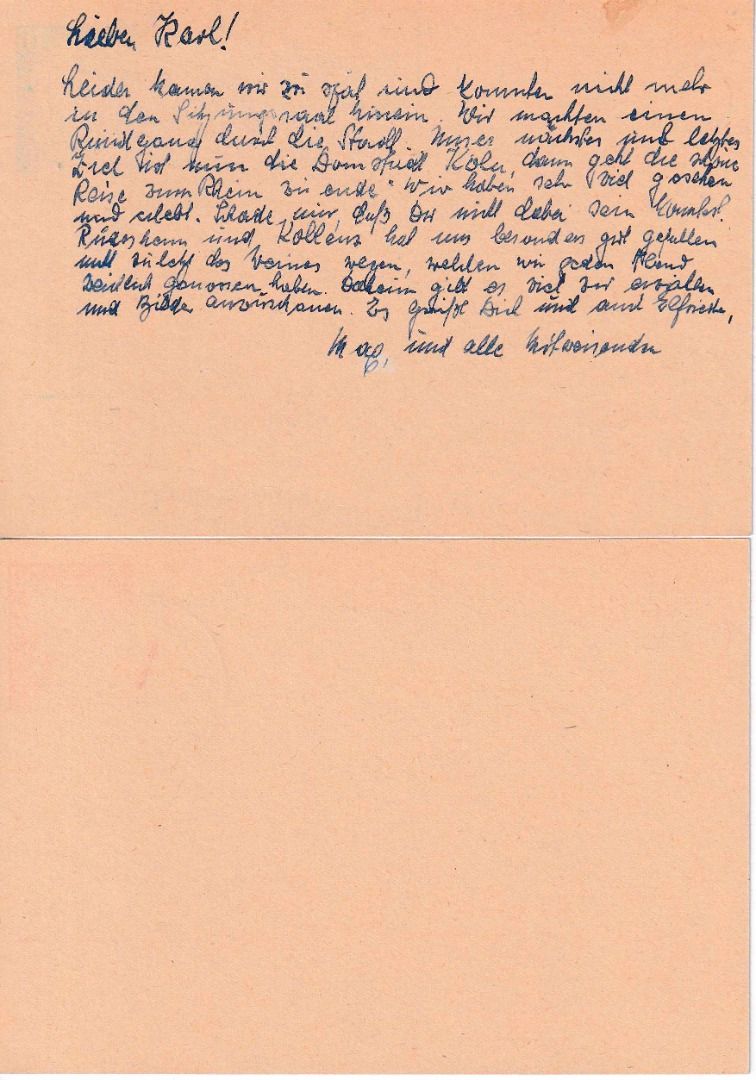 Lieber Karl!
Leider kamen wir zu spät und konnten nicht mehr
in den Sitzungssaal hinein. Wir machten einen
Rundgang durch die Stadt. Unser nächstes und letztes
Ziel ist nun die Domstadt Köln, dann geht die schöne
Reise zum Rhein zu ende. Wir haben sehr viel gesehen
und erlebt. Schade nur, daß Du nicht dabei sein konntest.
Rüdesheim und Koblenz hat uns besonders gut gefallen
nicht zuletzt des Weines wegen, welchen wir jeden Abend
reichlich genossen haben. Daheim gibt es viel zu erzählen
und Bilder anzuschauen. Es grüßt Dich und auch Elfriede,
und alle Mitreisenden